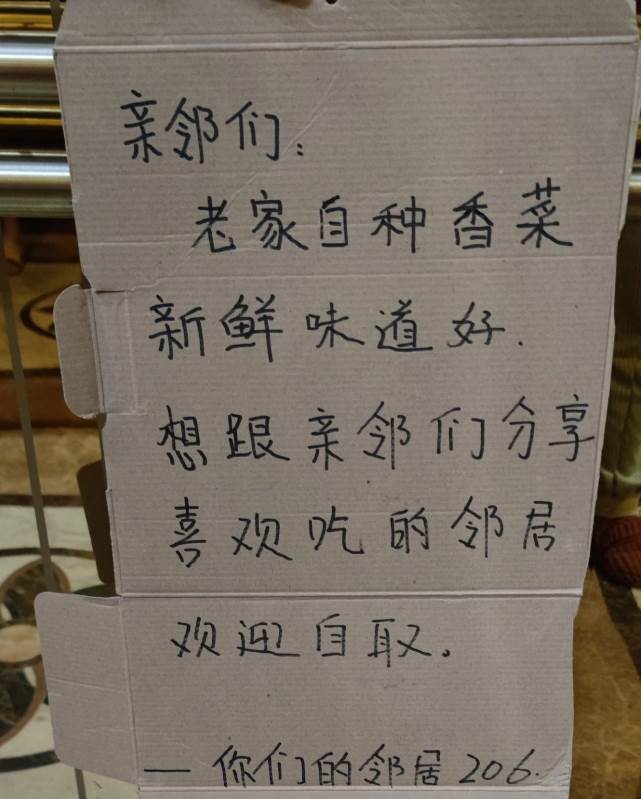 亲邻们：
老家自种香菜
新鲜味道好.
想跟亲邻们分享
喜欢吃的邻居
欢迎自取。
— 你们的邻居 206.